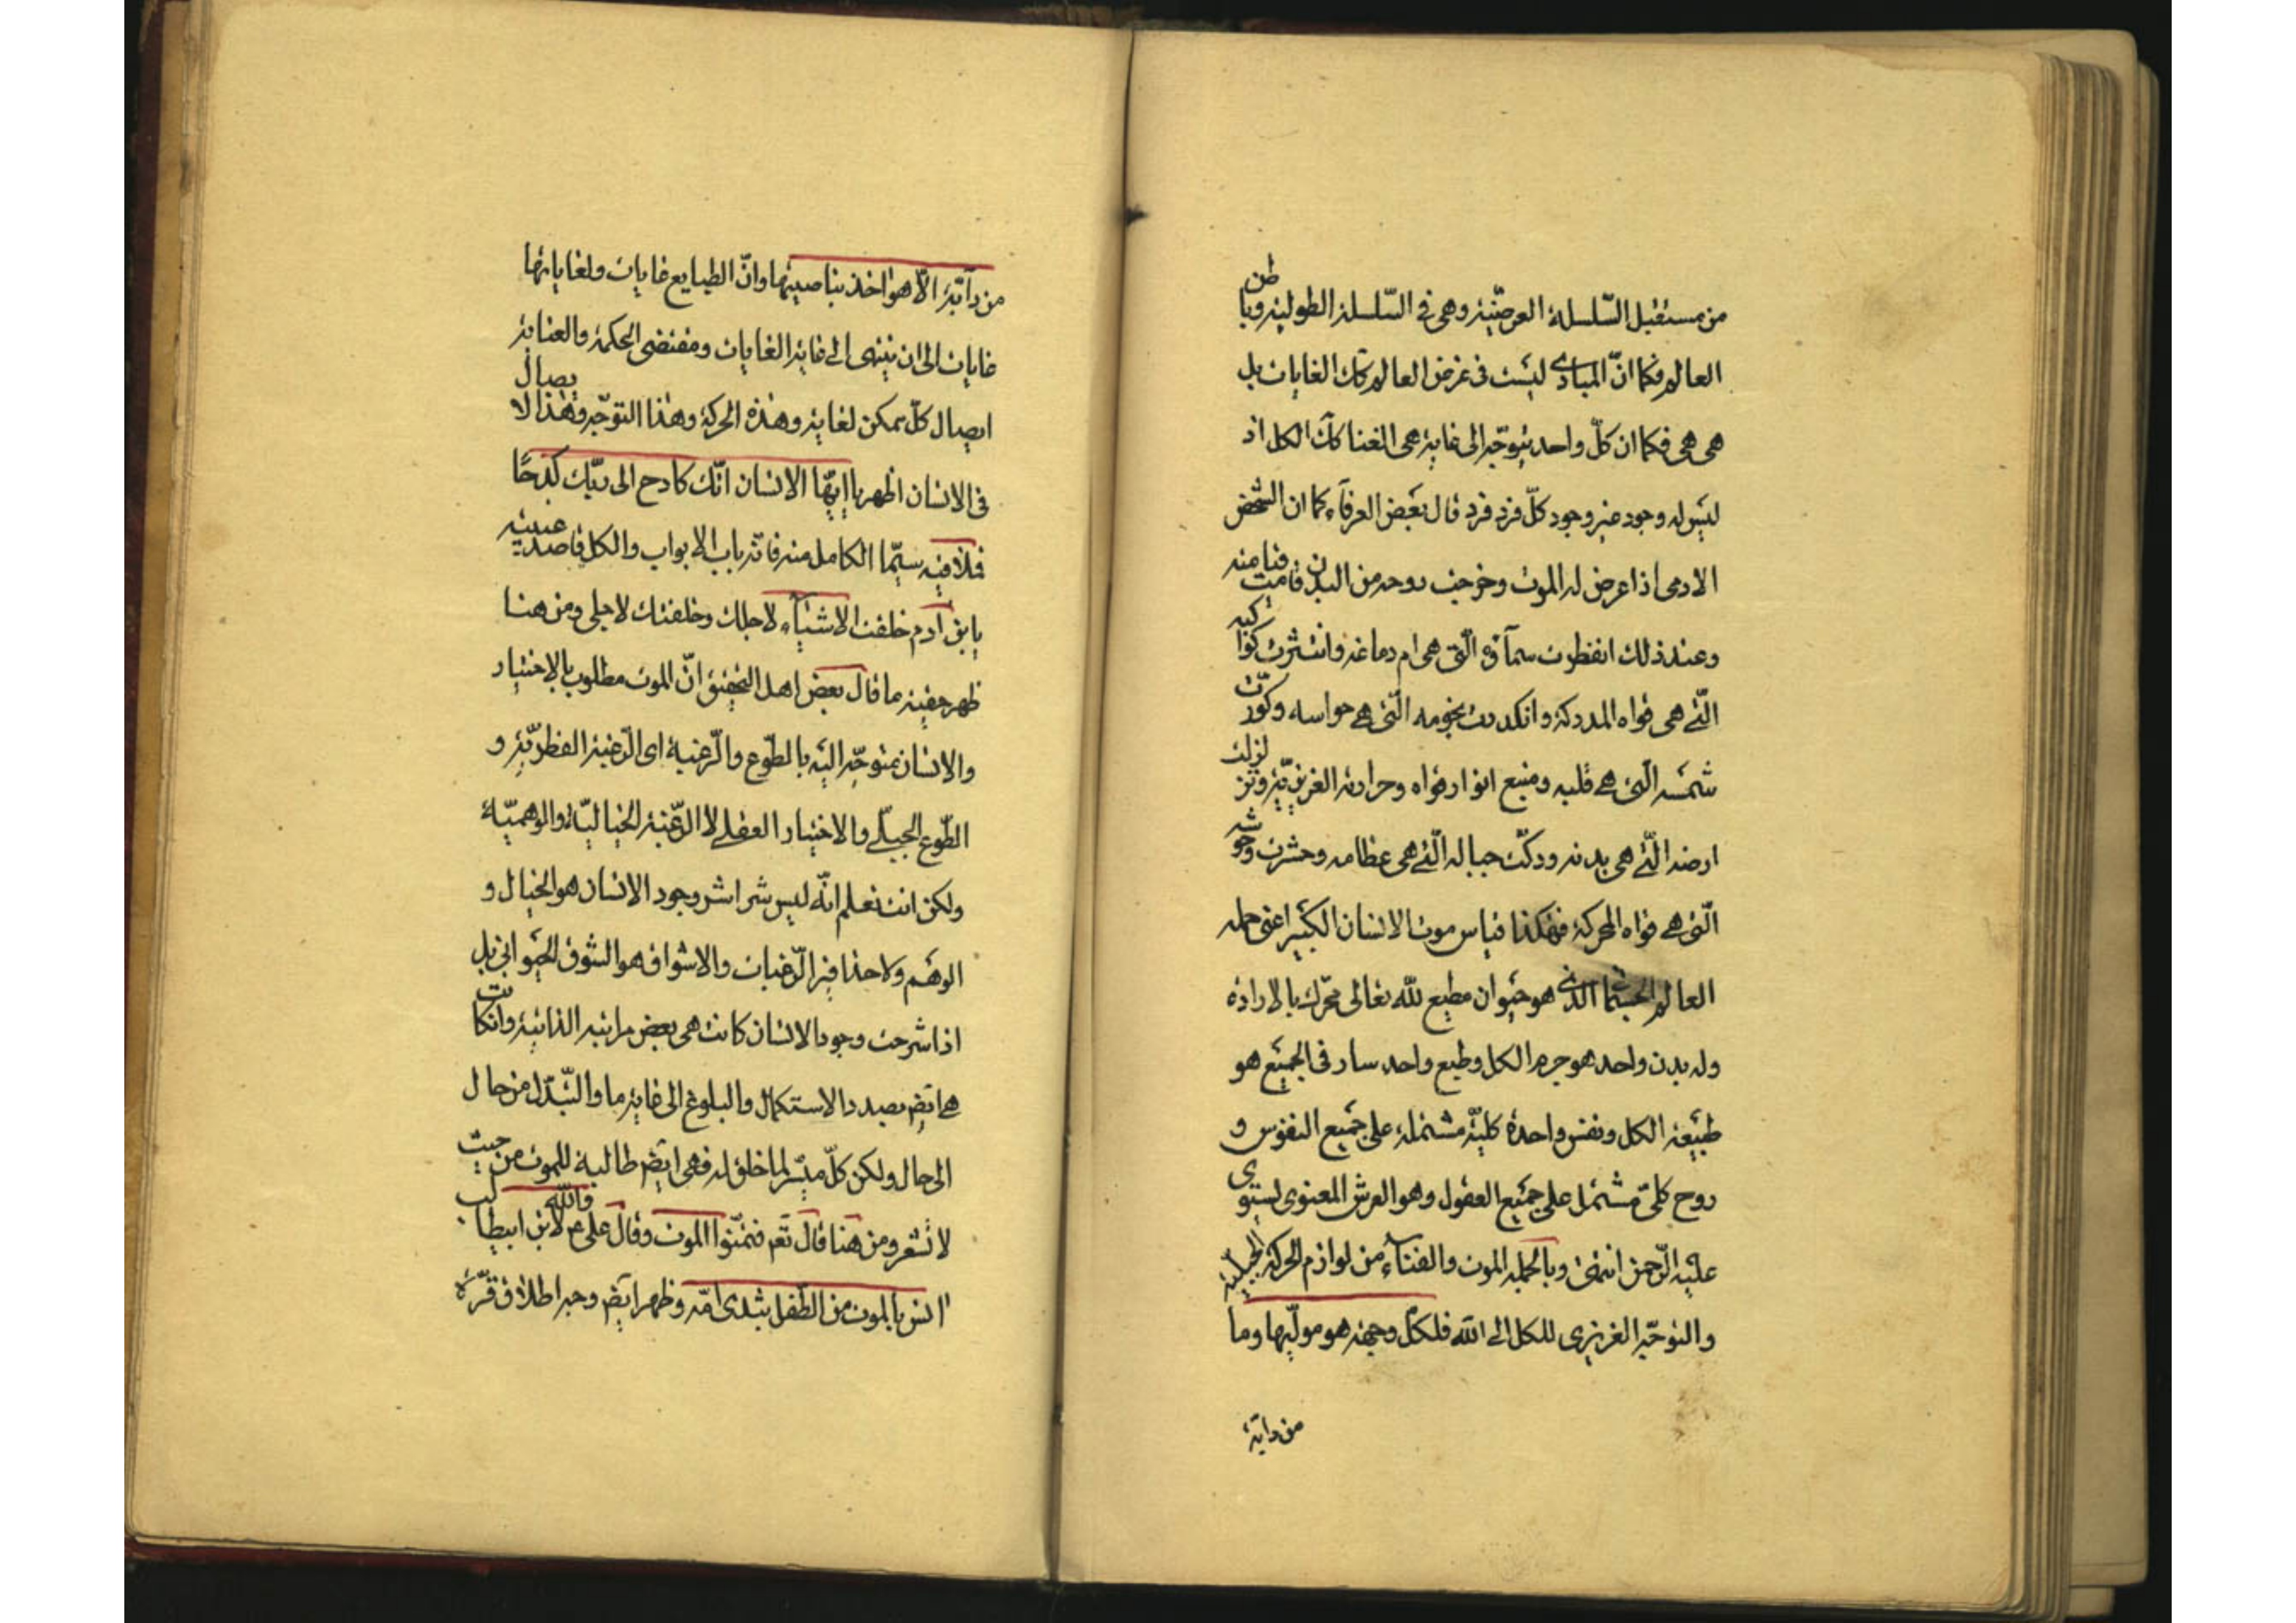 من مستقبل السّلسلة العرضيّة وهى فى السّلسلة الطولية وباطن
العالم فكما انّ المبادى ليست فى عرض العالم كك الغايات بل
هى هى فكما ان كلّ واحد يتوجّه الى غاية هى الفنا كك الكل اذ
ليس له وجود غير وجود كلّ فرد فرد قال بعض العرفاء كما ان الشخص
الادمى اذا عرض له الموت وخرجت روحه من البدن قامت قيامته
وعند ذلك انفطرت سمآؤه الّتى هى ام دماغه وانتثرت كواكبه
الّتى هى قواه المدركة وانكدرت نجومه الّتى هى حواسه وكوّرت
شمسه الّتى هى قلبه ومنبع انوار قواه وحرارته الغريزيّة وتزلزلت
ارضه الّتى هى بدنه ودكّت جباله الّتى هى عظامه وحشرت وحوشه
الّتى هى قواه المحركة فهكذا قياس موت الانسان الكبير اعنى جملة
العالم الجسمانى الذى هو حيوان مطيع لله تعالى محرّك بالارادة
وله بدن واحد هو جرم الكل وطبع واحد سار فى الجميع هو
طبيعة الكل ونفس واحدة كليّة مشتملة على جميع النفوس و
روح كلىّ مشتمل على جميع العقول وهو العرش المعنوى يستوى
عليه الرّحمن انتهى وبالجملة الموت والفنآء من لوازم الحركة الجبلّية
والتوجّه الغريزى للكل الى الله فلكلّ وجهة هو مولّيها وما
من دابّة
من دآبّة الّا هو اخذ بناصيتها وانّ الطبايع غايات ولغاياتها
غايات الى ان ينتهى الى غاية الغايات ومقتضى الحكمة والعناية
ايصال كلّ ممكن لغاية وهذه الحركة وهذا التوجّه وهذا الايصال
فى الانسان اظهر يا ايّها الانسان انّك كادح الى ربّك كدحًا
فملاقيه سيّما الكامل منه فانّه باب الابواب والكل قاصد
يا بن آدم خلقت الاشيآء لاجلك وخلقتك لاجلى ومن هنا
ظهر حقية ما قال بعض اهل التحقيق انّ الموت مطلوب بالاختيار
والانسان متوجّه اليه بالطّوع والرّغبة اى الرّغبة الفطريّة و
الطّوع الجبلّى والاختيار العقلى لا الرّغبة الخياليّة والوهميّة
ولكن انت تعلم انّه ليس شراشر وجود الانسان هو الخيال و
الوهم ولا حذافير الرّغبات والاشواق هو الشوق الحيوانى بل
اذا شرحت وجود الانسان كانت هى بعض مراتبه الذاتية وان كانت
هى ايضا بصدد الاستكمال والبلوغ الى غاية ما والتّبدّل من حال
الى حال ولكن كلّ ميسّر لما خلق له فهى ايضا طالبة للموت من حيث
لا تشعر ومن هنا قال تعم فتمنّوا الموت وقال على ع والله لابن ابيطالب
انس بالموت من الطّفل بثدى امّه وظهر ايضا وجه اطلاق قرّة